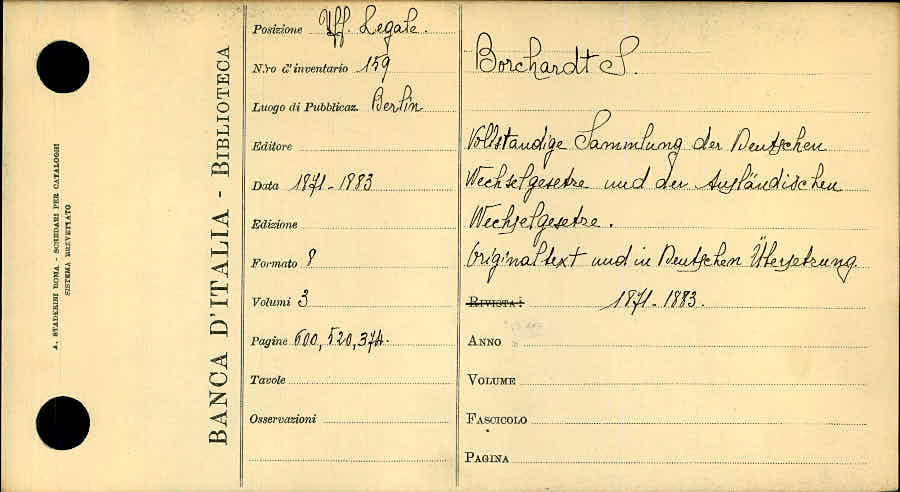 A. STADERINI ROMA - SCHEDARI PER CATALOGHI
SISTEMA BREVETTATO
BANCA D'ITALIA - BIBLIOTECA
Posizione Uff. Legale.
N.ro d'inventario 159
Luogo di Pubblicaz. Berlin
Editore
Data 1871-1883
Edizione
Formato 8
Volumi 3
Pagine 600, 520, 374.
Tavole
Osservazioni
Borchardt S.
Vollständige Sammlung der Deutschen
Wechselgesetze und der Ausländischen
Wechselgesetze.
Originaltext und in Deutschen Übersetzung
RIVISTA: 1871-1883.
ANNO
VOLUME
FASCICOLO
PAGINA